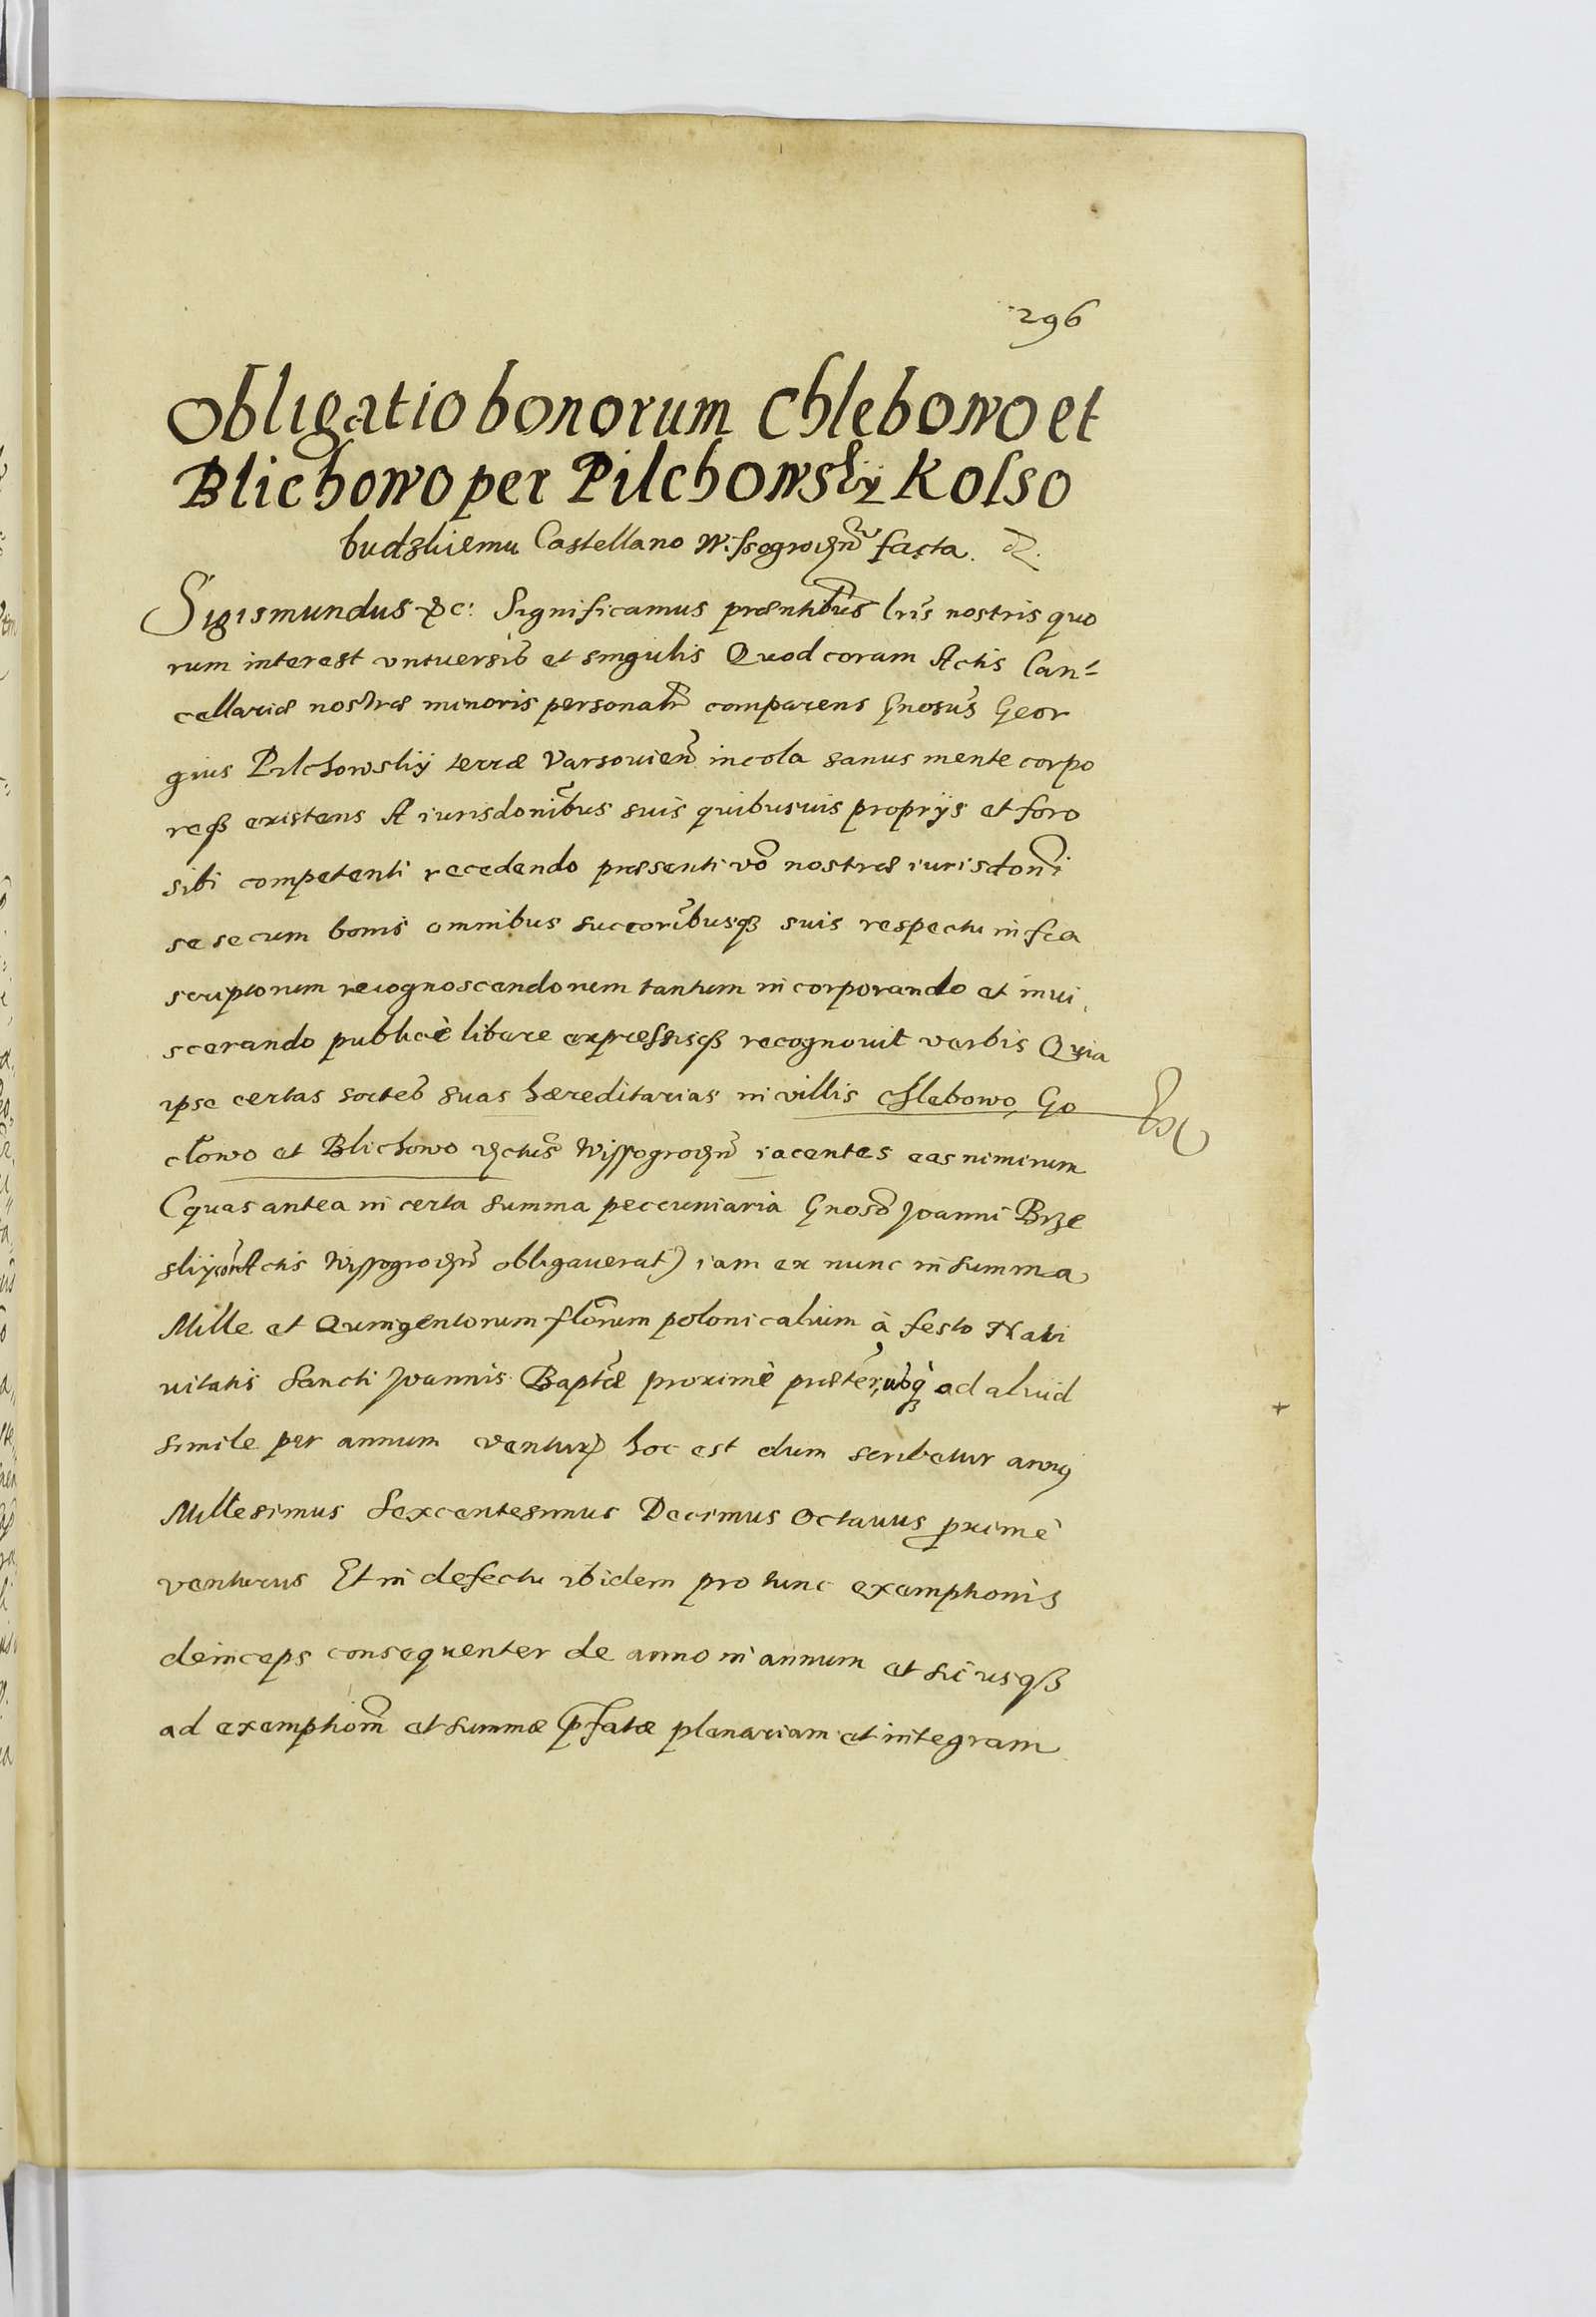 296
Obligatio bonorum Chlebowo et
Blichowo per Pilchowskÿ Kolso
budzkiemu Castellano Wissogrodzen facta.
Sigismundus &c: Significamus præntibus lris nostris quo
rum interest vniuersis et singulis Quod coram Actis Can=
cellariæ nostræ minoris personalr comparens Gnosus Geor
gius Pilchowskÿ terræ Varsouien incola sanus mente corpo
reqȝ existens A iurisdonibus suis quibusuis proprÿs et foro
sibi competenti recedendo præsenti vo nostræ iurisdoni
sese cum bonis omnibus succoribusqȝ suis respectu infra
scriptorum recognoscendorum tantum incorporando et inui
scerando publicè libere expressisqȝ recognouit verbis Quia
ipse certas sortes suas hæreditarias in villis Chlebowo, Go
cłowo et Blichowo dctus Wissogrodzen iacentes eas nimirum
(quas antea in certa summa peccuniaria Gnoso Joanni Brze
skÿ corā Actis Wissogrodzen obligauerat) iam ex nunc in summa
Mille et Quingentorum florum polonicalium à festo Nati
uitatis Sancti Joannis Baptæ proximè præter, usqȝ ad aliud
simile per annum ventur hoc est dum scribetur annus
Millesimus Sexcentesimus Decimus Octauus pximè
venturus Et in defectu ibidem pro tunc exemptionis
deinceps consequenter de anno in annum et sic usqȝ
ad exemptiom et summæ pfatæ plenariam et integram